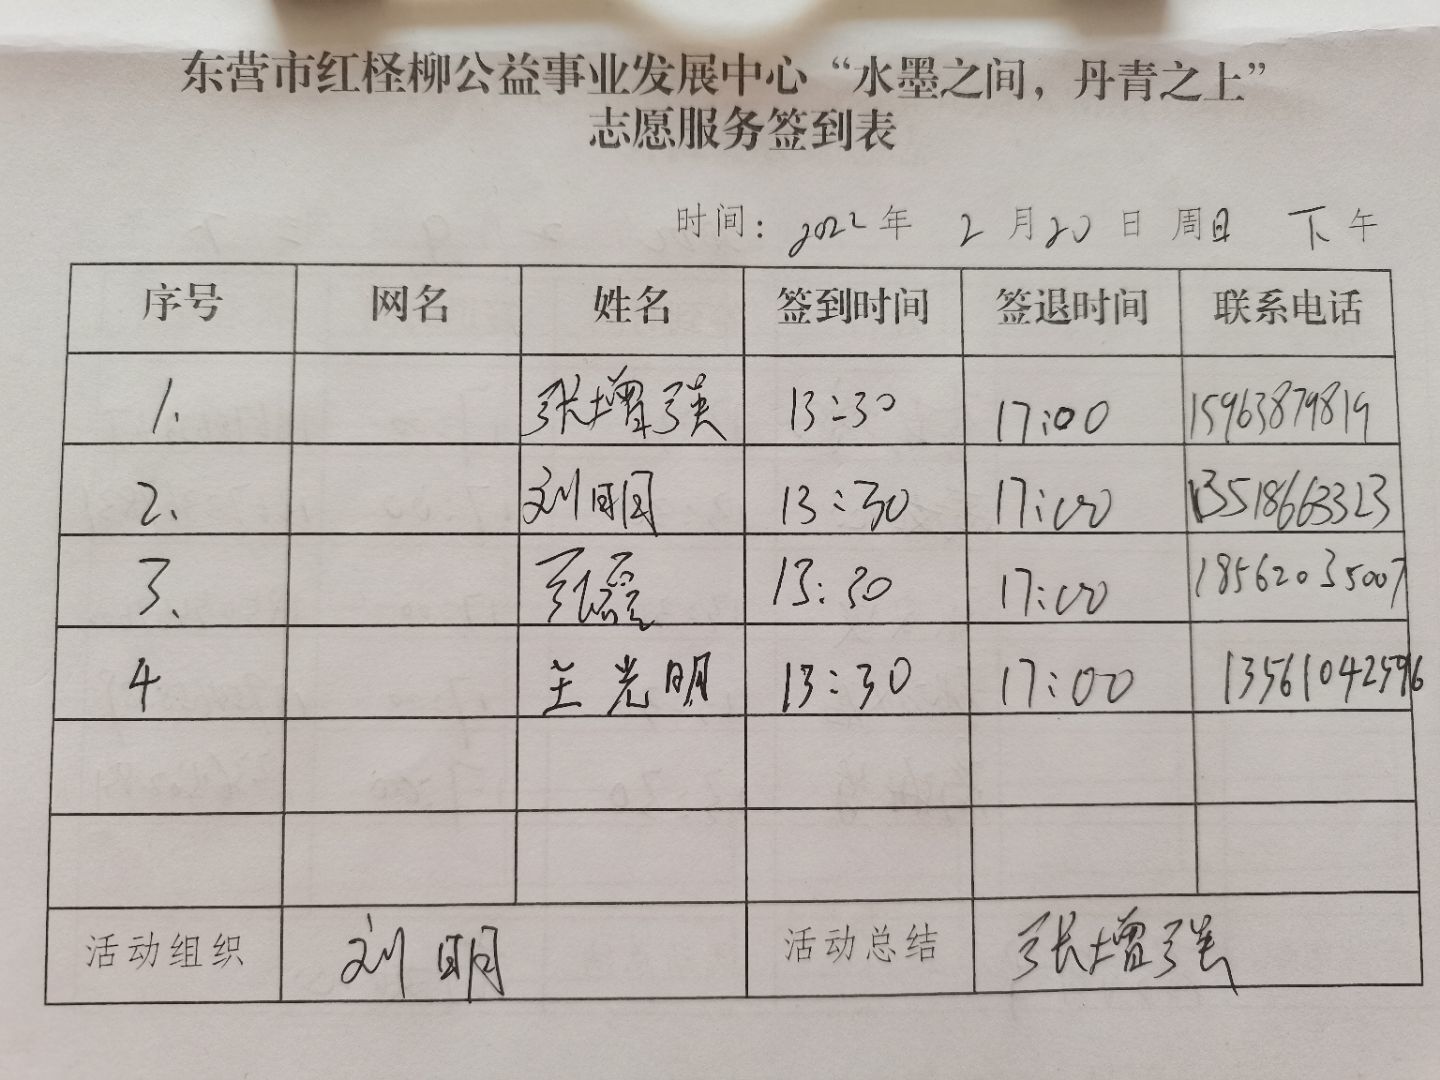 东营市红柽柳公益事业发展中心“水墨之间，丹青之上”
志愿服务签到表
时间：2022年 2月20日 周日 下午
序号 网名 姓名 签到时间 签退时间 联系电话
1. 张增强 13:30 17:00 15963879819
2. 刘明 13:30 17:00 13518663323
3. 张磊 13:30 17:00 18562035007
4 王光明 13:30 17:00
活动组织 刘明 活动总结 张增强